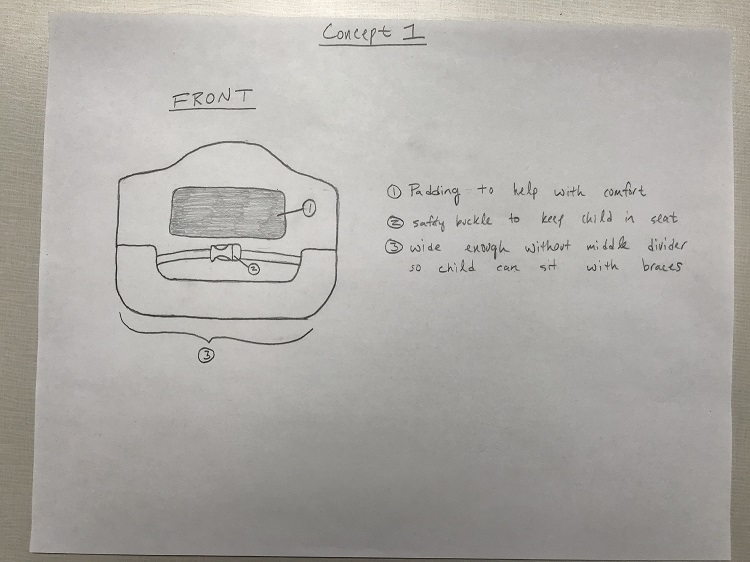 Concept 1
FRONT
① Padding to help with comfort
② safety buckle to keep child in seat
③ wide enough without middle divider
so child can sit with braces
①
②
③